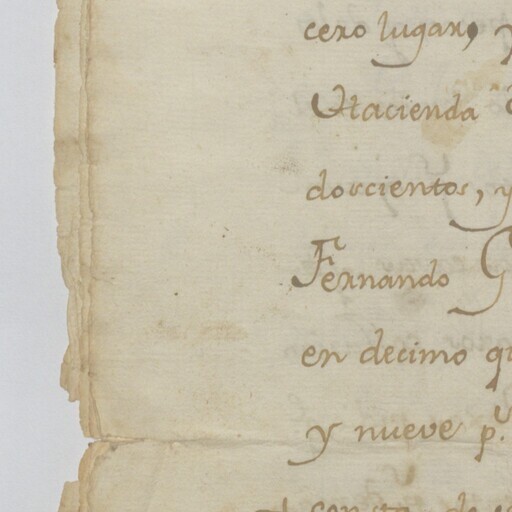 cero lugar, y
Hacienda
doscientos, y
Fernando G
en decimo qu
y nueve p.s
consta de